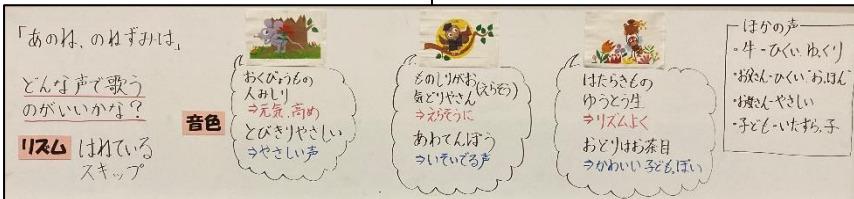 「あのね、のねずみは」
どんな声で歌う
のがいいかな?
リズム はねている
スキップ
音色
おくびょうもの
人みしり
⇒元気、高め
とびきりやさしい
⇒やさしい声
ものしりがお(えらそう)
気どりやさん
⇒えらそうに
あわてんぼう
⇒いそいでる声
はたらきもの
ゆうとう生
⇒リズムよく
おどりはお茶目
⇒かわいい子どもっぽい
ほかの声
・牛ーひくい、ゆっくり
・お父さんーひくい"おっほん"
・お母さんーやさしい
・子どもーいたずらっ子